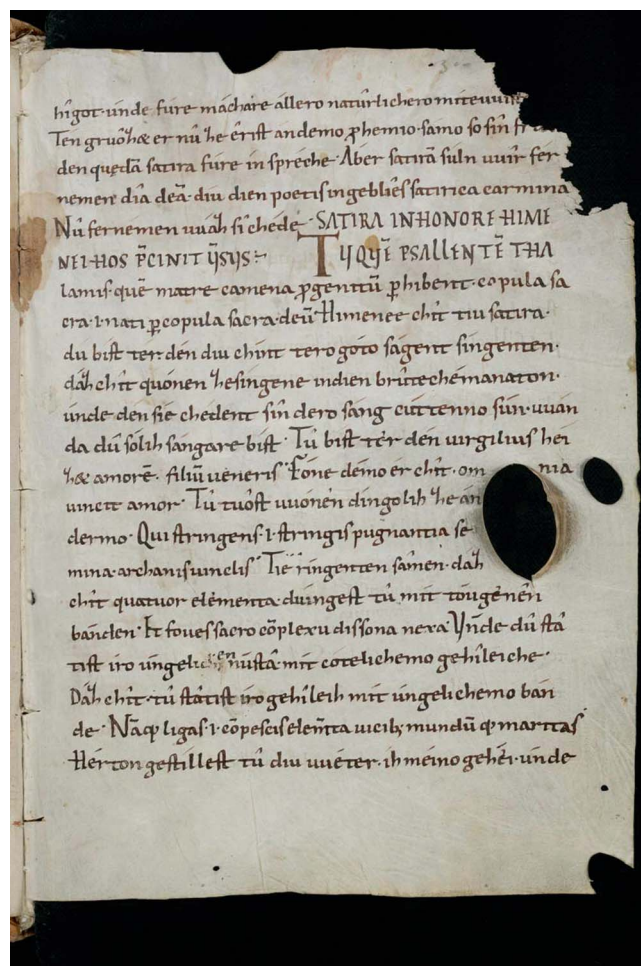 hîgot. únde fúre máchare állero natûrlichero mítewíst
Tén gruôzta er nû. zêerist an demo ꝓhemio. sámo so sîn
den quędā satira fúre ín spréche. Aber satirā súln uuír fer
nemen día déā. díu dien poetis ingeblîes satirica carmina
Nû fernemên uuáz sî chéde. SATIRA IN HONORE HIME
NEI HOS P̄CINIT VERSVS. TV QUĒ PSALLENTĒ THA
lamis. quē matre camena ꝓgenitū ꝑhibent. copula sa
cra .i. nati ꝑ copula sacra. deū Himenee chît tiu satira.
du bist ter dén díu chínt tero góto ságent síngenten.
dáz chît quónen zesíngenne in dien brûtechémanaton.
únde den síe chédent sîn dero sángcúttenno sún. uuán
da dû sólih sángare bist. Tû bist tér den uirgilius hei
zet amorē. filiū ueneris. Fóne démo ér chît. omnia
uincit amor. Tû túost uuónên díngolîh zeán
dermo. Qui stringens .i. stringis pugnantia se
mina. archanis uinclis. Tie ríngenten sâmen. dáz
chît quatuor elementa duuíngest tû mit tóugênên
bánden. Et foues sacro cōplexu dissona nexa. Únde dû stâ
tist íro úngelichen nústâ mit cótelichemo gehîleiche.
Dáz chît. tû stâtist íro gehîleih mit úngelichemo bán
de. Nāq; ligas .i. cōpescis elem̄ta uicib; mundū q; maritas
Hérton gestíllest tû diu uuéter. íh méino gehéi. únde